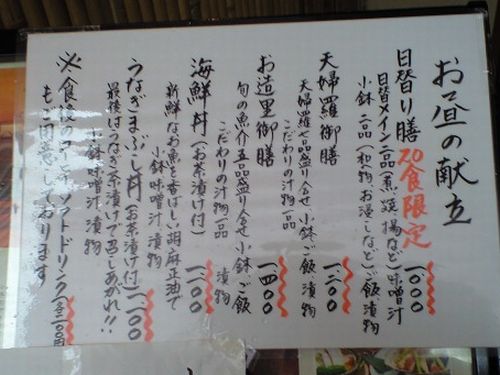 お昼の献立
日替り膳 20食限定 一、〇〇〇
日替メイン二品(煮、焼、揚など)味噌汁
小鉢二品(和物、お浸しなど)ご飯 漬物
天婦羅御膳 一、二〇〇
天婦羅七品盛り合せ 小鉢 ご飯 漬物
こだわりの汁物一品
お造里御膳 一、四〇〇
旬の魚介五品盛り合せ 小鉢 ご飯
こだわりの汁物一品 漬物
海鮮丼(お茶漬け付) 一、二〇〇
新鮮なお魚を香ばしい胡麻正油で
小鉢 味噌汁 漬物
うなぎまぶし丼(お茶漬け付) 一、二〇〇
最後はうなぎ茶漬けで召しあがれ!!
小鉢 味噌汁 漬物
※食後のコーヒー、ソフトドリンク(各二〇〇円)
もご用意しております